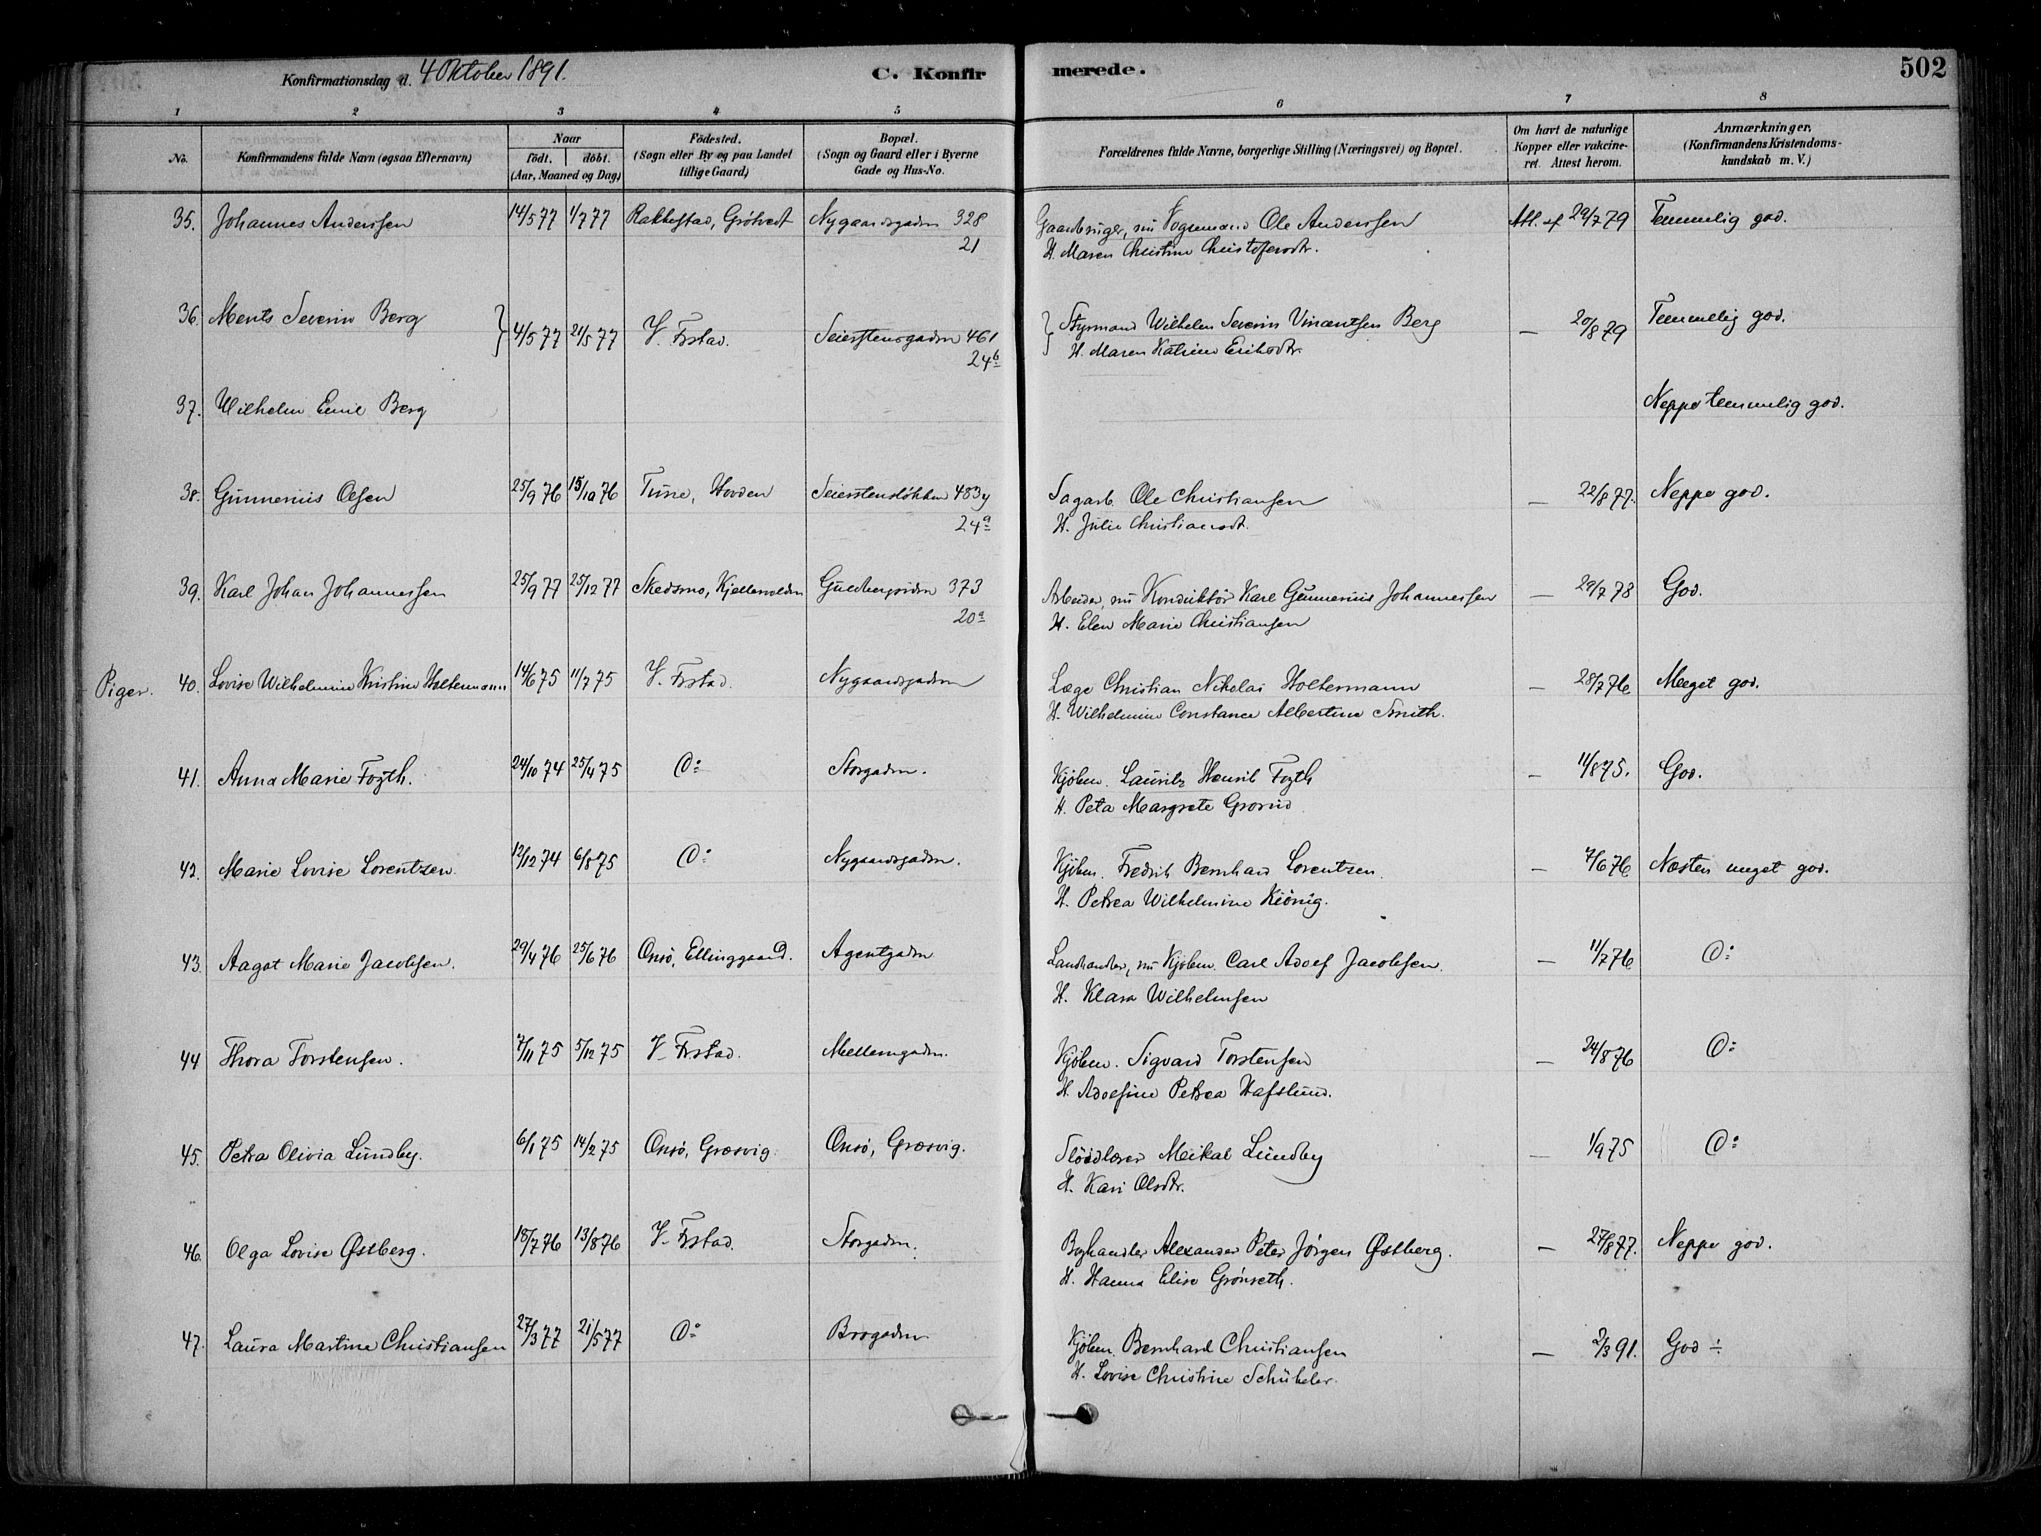 Konfirmationsdag d. 4 Oktober 1891. C. Konfirmerede. 502
1 2 3 4 5 6 7 8
No. Konfirmandens fulde Navn (ogsaa Efternavn) Naar födt. döbt. (Aar, Maaned og Dag) Födested. (Sogn eller By og paa Landet tillige Gaard) Bopæl. (Sogn og Gaard eller i Byerne Gade og Hus-No. Forældrenes fulde Navne, borgerlige Stilling (Næringsvei) og Bopæl. Om havt de naturlige Kopper eller vakcineret. Attest herom. Anmærkninger. (Konfirmandens Kristendomskundskab m. V.)
35. Johannes Anderssen 14/5 77 1/7 77 Rakkestad, Grötvedt Nygaardsgaden 328 Gaardbruger, nu Vognmand Ole Anderssen Att. af 29/7 79 Temmelig god.
21 H. Maren Christine Christofersdtr.
36. Ments Severin Berg 4/5 77 21/5 77 V. Frstad. Seierstensgaden 461 Styrmand Wilhelm Severin Vincentsen Berg — 20/8 79 Temmelig god.
24b H. Maren Katrine Eriksdtr.
37. Wilhelm Emil Berg Neppe temmelig god.
38. Gunnerius Olsen 25/9 76 15/10 76 Tune, Hovden Seierstenslökken 483y Sagarb. Ole Christiansen — 22/8 77. Neppe god.
24a H. Julie Christiansdt.
39. Karl Johan Johannessen 25/9 77 25/12 77 Skedsmo, Kjellervolden Guldbergsiden 373 Arbeider, nu Konduktör Karl Gunnerius Johannessen — 29/7 78 God.
20a H. Elen Marie Christiansen
Piger. 40. Lovise Wilhelmine Kristine Holtermann 14/6 75 11/7 75 V. Frstad. Nygaardsgaden Læge Christian Nikolai Holtermann — 28/7 76 Meget god.
H. Wilhelmine Constance Albertine Smith.
41. Anna Marie Foyth. 24/10 74 25/4 75 Do Storgaden. Kjöbm. Lauritz Henrik Foyth — 11/8 75. God.
H. Peta Margrete Grorud
42. Marie Lovise Lorentzen 12/12 74 6/8 75 Do Nygaardsgaden. Kjöbm. Fredrik Bernhard Lorentzen. — 7/6 76 Næsten meget god.
H. Petrea Wilhelmine Kiönig.
43. Aagot Marie Jacobsen. 29/4 76 25/6 76 Onsö, Ellinggaard. Agentgaden Landhandler, nu Kjöbm. Carl Adolf Jacobsen. — 11/7 76 Do
H. Klara Wilhelmsen
44 Thora Torstensen. 7/11 75 5/12 75 V. Frstad. Mellemgaden. Kjöbm. Sigvard Torstensen — 24/8 76 Do
H. Adolfine Petrea Hafslund.
45. Petra Olivia Lundby. 6/1 75 14/2 75 Onsö, Græsvig. Onsö, Græsvig. Slöidlærer Meikal Lundby — 1/9 75 Do
H. Kari Olsdtr.
46. Olga Lovise Østberg. 18/7 76 13/8 76 V. Frstad. Storgaden. Boghandler Alexander Peter Jörgen Østberg. — 27/8 77. Neppe god.
H. Hanna Elise Grönseth.
47. Laura Martine Christiansen 27/3 77 21/5 77 Do Brogaden Kjöbm. Bernhard Christiansen — 2/3 91. God ÷
H. Lovise Christine Schübeler.